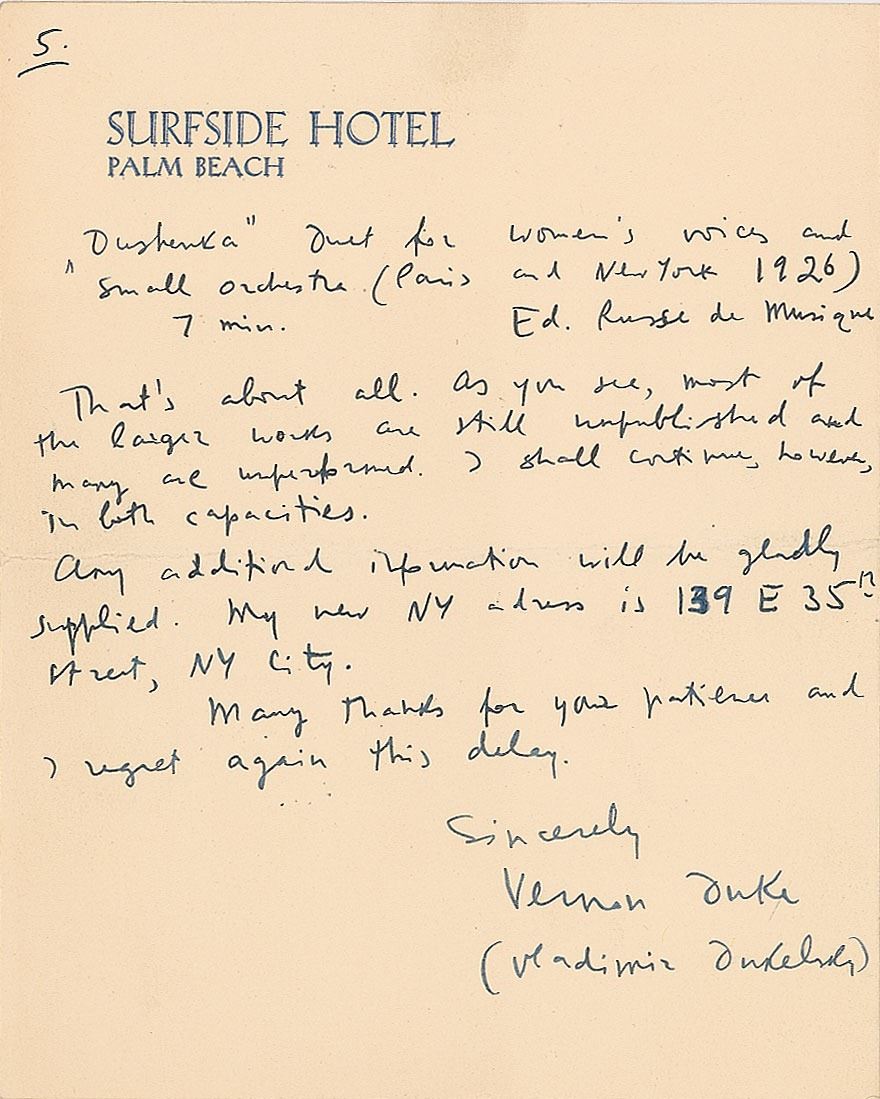 5.
SURFSIDE HOTEL
PALM BEACH
"Dushenka" Duet for women's voices and
small orchestra (Paris and New York 1926)
7 min. Ed. Russe de Musique
That's about all. As you see, most of
the larger works are still unpublished and
many are unperformed. I shall continue, however,
in both capacities.
Any additional information will be gladly
supplied. My new NY adress is 139 E 35th
Street, NY City.
Many thanks for your patience and
I regret again this delay.
Sincerely
Vernon Duke
(Vladimir Dukelsky)